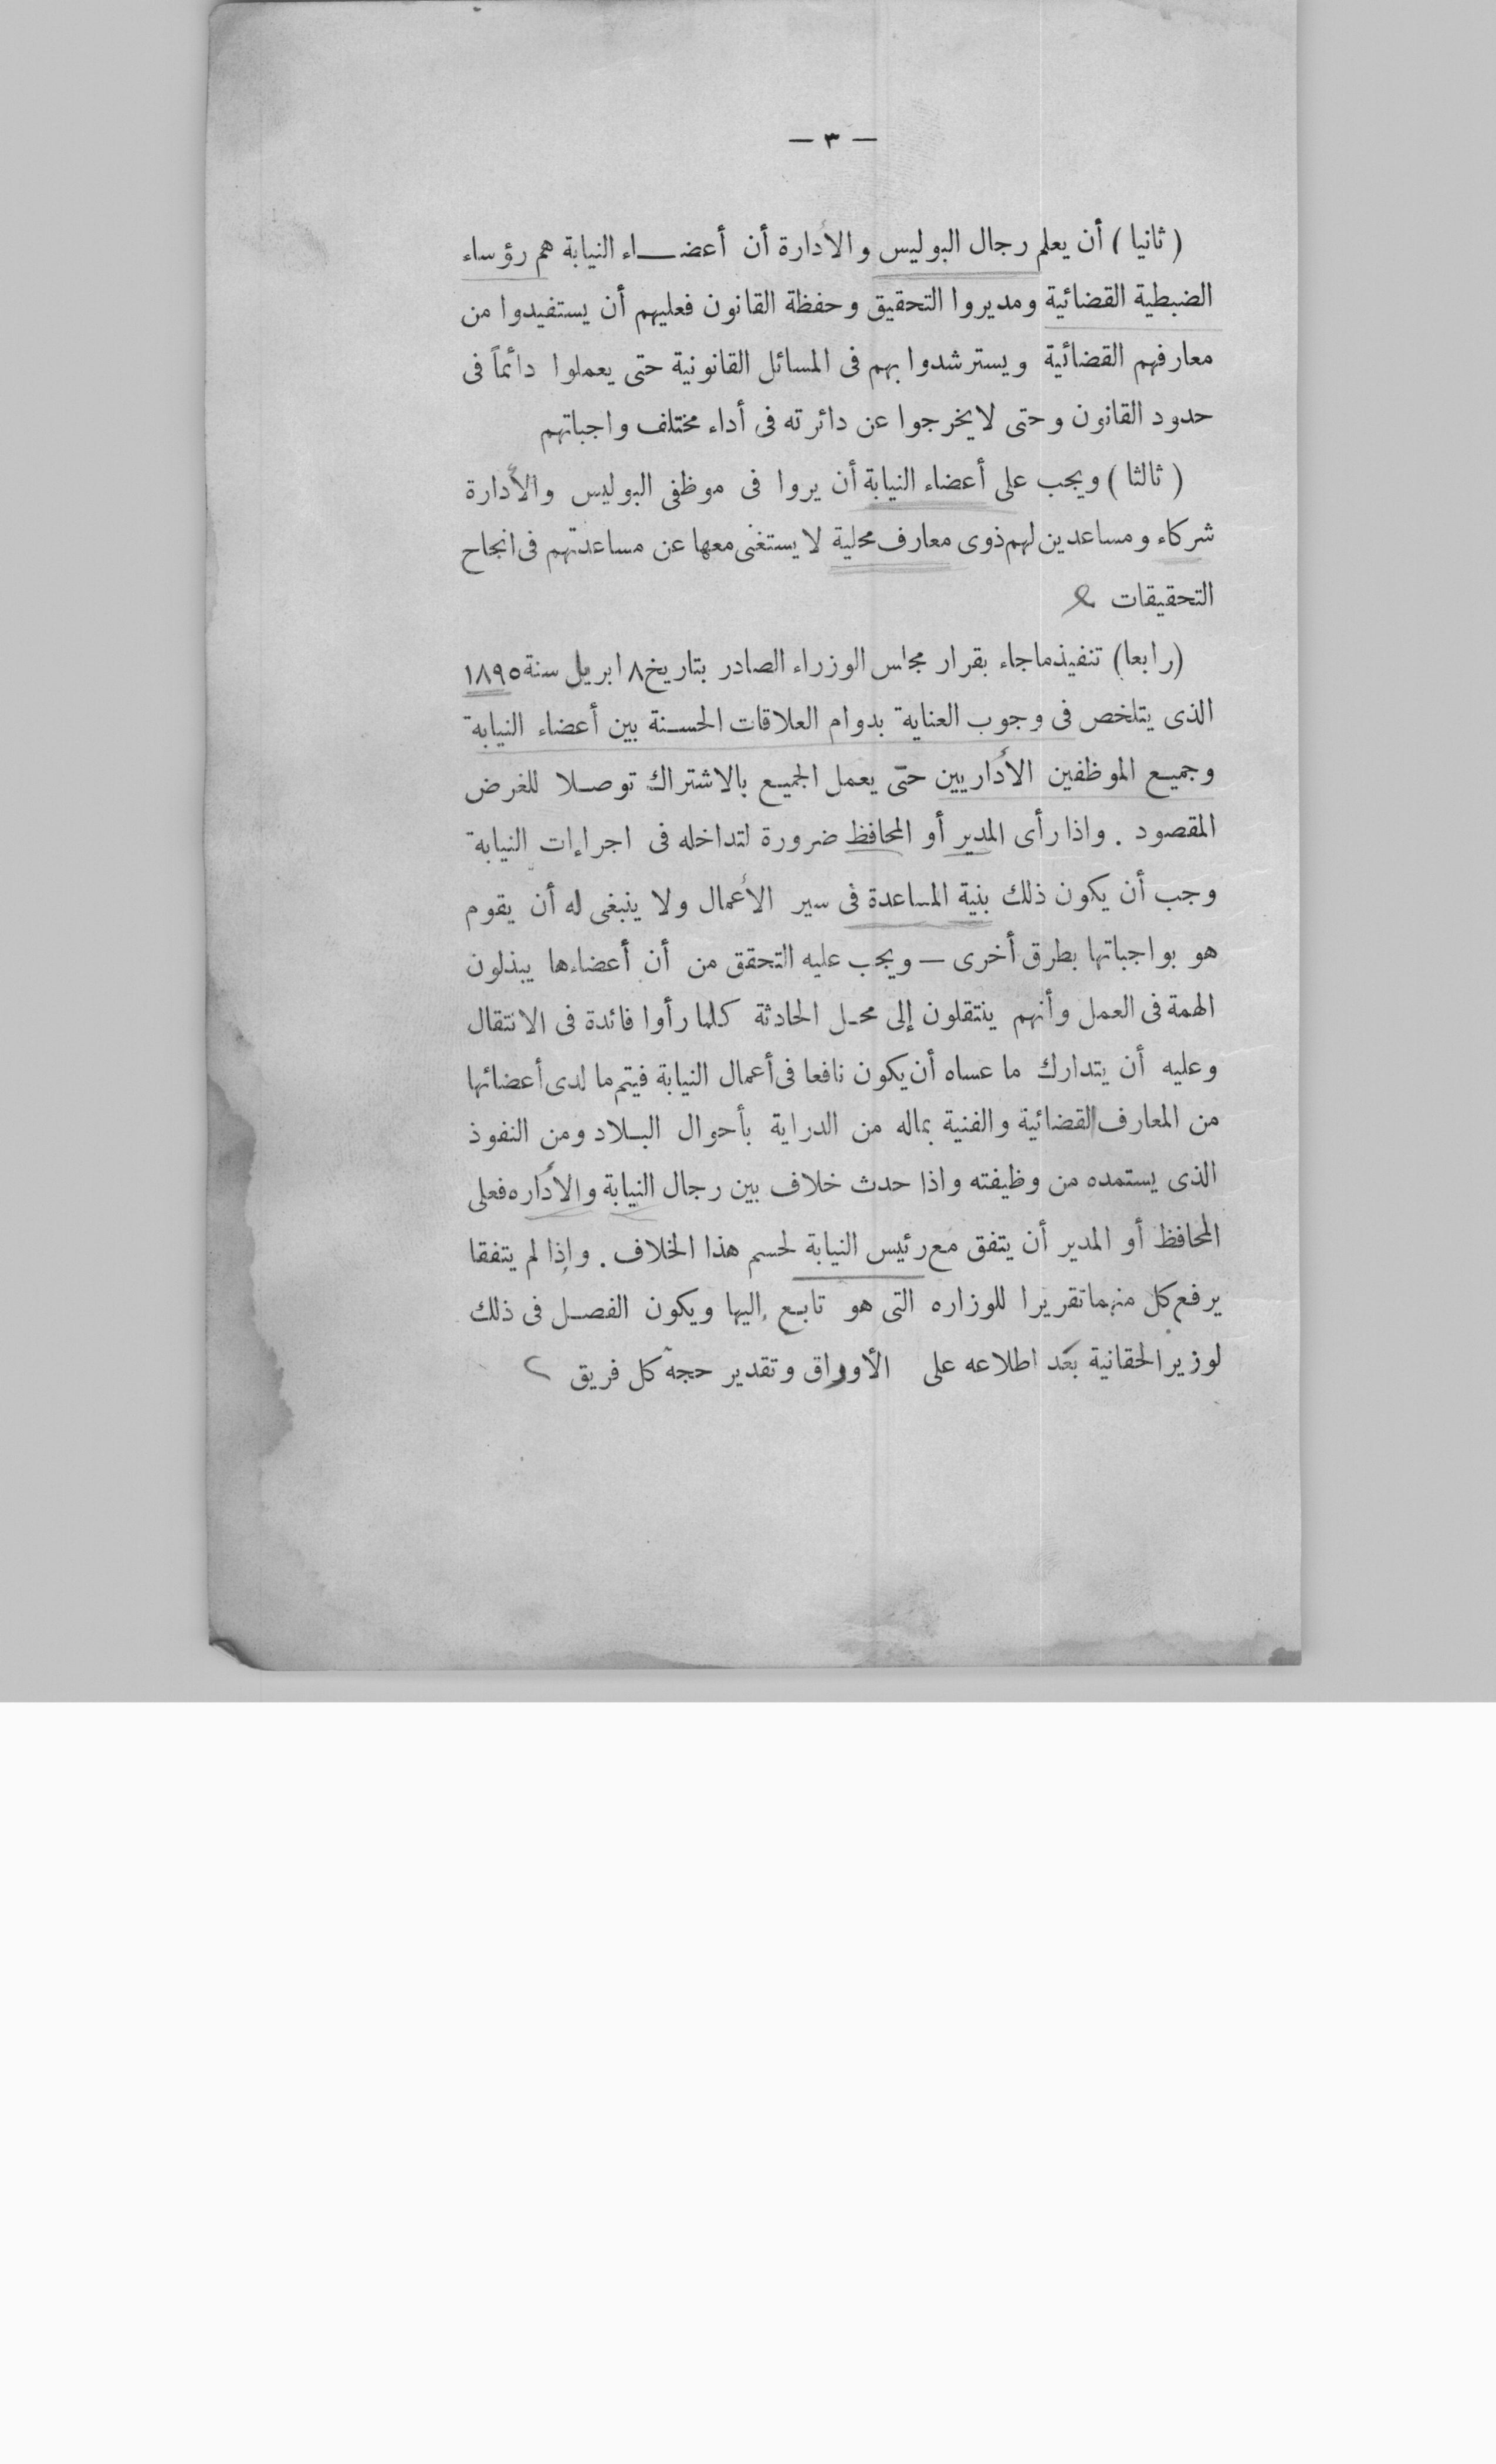 — ٣ —
( ثانيا ) أن يعلم رجال البوليس والأدارة أن أعضاء النيابة هم رؤساء
الضبطية القضائية ومديروا التحقيق وحفظة القانون فعليهم أن يستفيدوا من
معارفهم القضائية ويسترشدوا بهم فى المسائل القانونية حتى يعملوا دائماً فى
حدود القانون وحتى لايخرجوا عن دائرته فى أداء مختلف واجباتهم
( ثالثا ) ويجب على أعضاء النيابة أن يروا فى موظفى البوليس والأدارة
شركاء ومساعدين لهم ذوى معارف محلية لا يستغنى معها عن مساعدتهم فى انجاح
التحقيقات
(رابعا) تنفيذ ماجاء بقرار مجلس الوزراء الصادر بتاريخ ٨ ابريل سنة ١٨٩٥
الذى يتلخص فى وجوب العناية بدوام العلاقات الحسنة بين أعضاء النيابة
وجميع الموظفين الأداريين حتّى يعمل الجميع بالاشتراك توصلا للغرض
المقصود . واذا رأى المدير أو المحافظ ضرورة لتداخله فى اجراءات النيابة
وجب أن يكون ذلك بنية المساعدة فى سير الأعمال ولا ينبغى له أن يقوم
هو بواجباتها بطرق أخرى — ويجب عليه التحقق من أن أعضاءها يبذلون
الهمة فى العمل وأنهم ينتقلون إلى محل الحادثة كلما رأوا فائدة فى الانتقال
وعليه أن يتدارك ما عساه أن يكون نافعا فى أعمال النيابة فيتم ما لدى أعضائها
من المعارف القضائية والفنية بماله من الدراية بأحوال البلاد ومن النفوذ
الذى يستمده من وظيفته واذا حدث خلاف بين رجال النيابة والأداره فعلى
المحافظ أو المدير أن يتفق مع رئيس النيابة لحسم هذا الخلاف . وإذا لم يتفقا
يرفع كل منهما تقريرا للوزاره التى هو تابع إليها ويكون الفصل فى ذلك
لوزير الحقانية بعد اطلاعه على الأوراق وتقدير حجة كل فريق